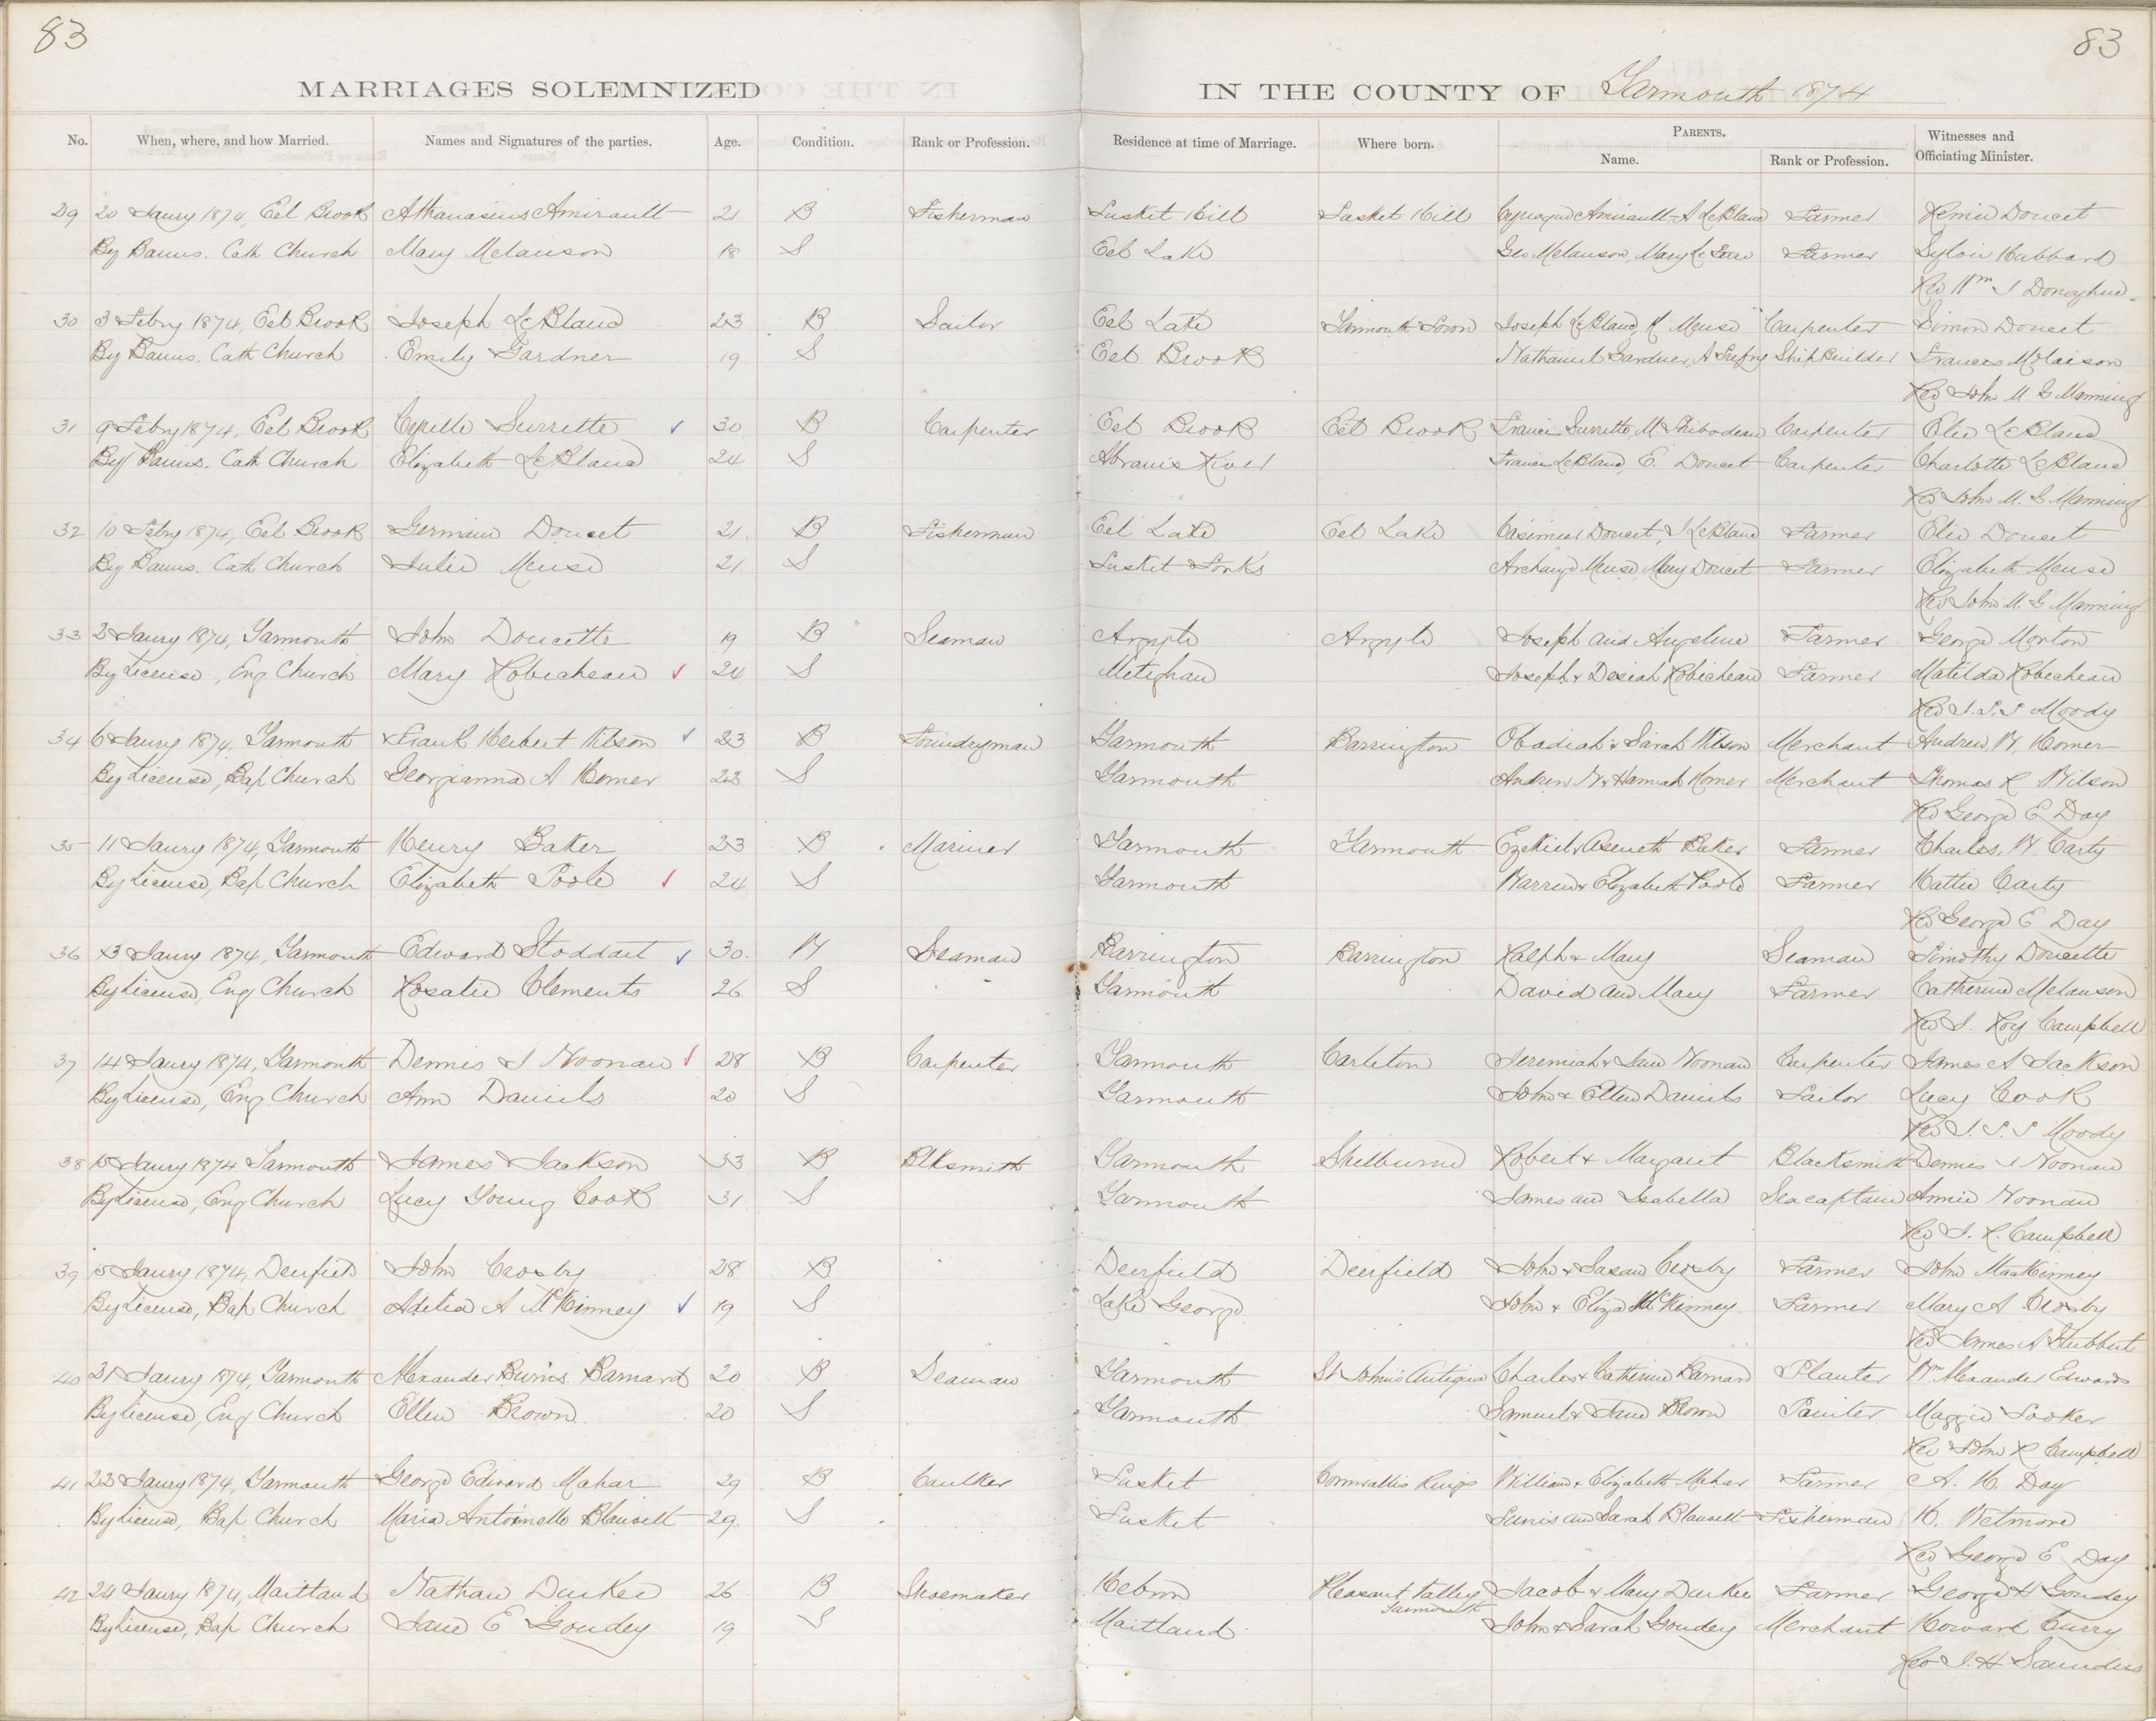 83 83
MARRIAGES SOLEMNIZED IN THE COUNTY OF Yarmouth 1874
No. When, where, and how Married. Names and Signatures of the parties. Age. Condition. Rank or Profession. Residence at time of Marriage. Where born. PARENTS. Name. Rank or Profession. Witnesses and Officiating Minister.
29 20 Jaury 1874, Eel Brook Athanasius Amirault 21 B Fisherman Tusket Hill Tusket Hill Amirault A LeBlanc Farmer Remie Doucet
By Banns. Cath Church Mary Melanson 18 S Eel Lake Geo Melanson, Mary Farmer Sylvie Hubbard
Rev Wm J Donoghue
30 3 Febry 1874, Eel Brook Joseph LeBlanc 23 B Sailor Eel Lake Yarmouth Town Joseph LeBlanc, R Meuse Carpenter Simon Doucet
By Banns. Cath Church Emily Gardner 19 S Eel Brook Nathaniel Gardner, A Trefry Ship Builder Frances
Rev John M. G Manning
31 9 Febry 1874, Eel Brook Cyrille Surrette 30 B Carpenter Eel Brook Eel Brook Francis Surrette M. Thibodeau Carpenter Elie LeBlanc
By Banns. Cath Church Elizabeth LeBlanc 24 S Abrams River Francis LeBlanc, E. Doucet Carpenter Charlotte LeBlanc
Rev John M. G Manning
32 10 Febry 1874, Eel Brook Germain Doucet 21 B Fisherman Eel Lake Eel Lake Casimier Doucet, J LeBlanc Farmer Elie Doucet
By Banns. Cath Church Julie Meuse 21. S Tusket Forks Archange Meuse, Mary Doucet Farmer Elizabeth Meuse
Rev John M. G Manning
33 2 Jaury 1874, Yarmouth John Doucette 19 B Seaman Argyle Argyle Joseph and Angeline Farmer George Morton
By License, Eng Church Mary Robicheau 24 S Meteghan Joseph & Desiah Robicheau Farmer Matilda Robicheau
Rev J. T. T Moody
34 6 Jaury 1874, Yarmouth Frank Herbert Wilson 23 B Foundryman Yarmouth Barrington Obadiah & Sarah Wilson Merchant Andrew W. Homer
By License, Bap Church Georgianna A Homer 23 S Yarmouth Andrew W & Hannah Homer Merchant Thomas R Wilson
Rev George E Day
35 11 Jaury 1874, Yarmouth Henry Baker 23 B Mariner Yarmouth Yarmouth Ezekiel & Aseneth Baker Farmer Charles, W. Carty
By License, Bap Church Elizabeth Poole 24 S Yarmouth Warren & Elizabeth Poole Farmer Hattie Carty
Rev George E Day
36 13 Jaury 1874, Yarmouth Edward Stoddart 30. W Seaman Barrington Barrington Ralph & Mary Seaman Timothy Doucette
By License, Eng Church Rosalie Clements 26 S Yarmouth David and Mary Farmer Catherine Melanson
Rev J. Roy Campbell
37 14 Jaury 1874, Yarmouth Dennis J Noonan 28 B Carpenter Yarmouth Carleton Jeremiah & Jane Noonan Carpenter James A Jackson
By License, Eng Church Ann Daniels 20 S Yarmouth John & Ellen Daniels Sailor Lucy Cook
Rev J. T. T Moody
38 15 Jaury 1874 Yarmouth James Jackson 33 B Blksmith Yarmouth Shelburne Robert & Margaret Blacksmith Dennis J Noonan
By License, Eng Church Lucy Young Cook 31 S Yarmouth James and Isabella Sea captain Annie Noonan
Rev J. R. Campbell
39 15 Jaury 1874, Deerfield John Crosby 28 B Deerfield Deerfield John & Susan Crosby Farmer John MacKinney
By License, Bap Church Adelia A McKinney 19 S Lake George John & Eliza McKinney Farmer Mary A Crosby
Rev James A Stubbert
40 21 Jaury 1874, Yarmouth Alexander Burns Barnard 20 B Seaman Yarmouth St Johns Antigua Charles & Catherine Barnard Planter Wm Alexander Edwards
By License, Eng Church Ellen Brown 20 S Yarmouth Samuel & Jane Brown Painter Maggie Tooker
Rev John R Campbell
41 23 Jaury 1874, Yarmouth George Edward Mahar 29 B Caulker Tusket Cornwallis Kings William & Elizabeth Mahar Farmer A. H. Day
By License, Bap Church Maria Antoinette Blauvelt 29. S Tusket Tunis and Sarah Blauvelt Fisherman H. Wetmore
Rev George E Day
42 24 Jaury 1874, Maitland Nathan Durkee 26 B Shoemaker Hebron Pleasant Valley Yarmouth Jacob & Mary Durkee Farmer George H Goudey
By License, Bap Church Jane E Goudey 19 S Maitland John & Sarah Goudey Merchant Howard Curry
Rev J. H Saunders